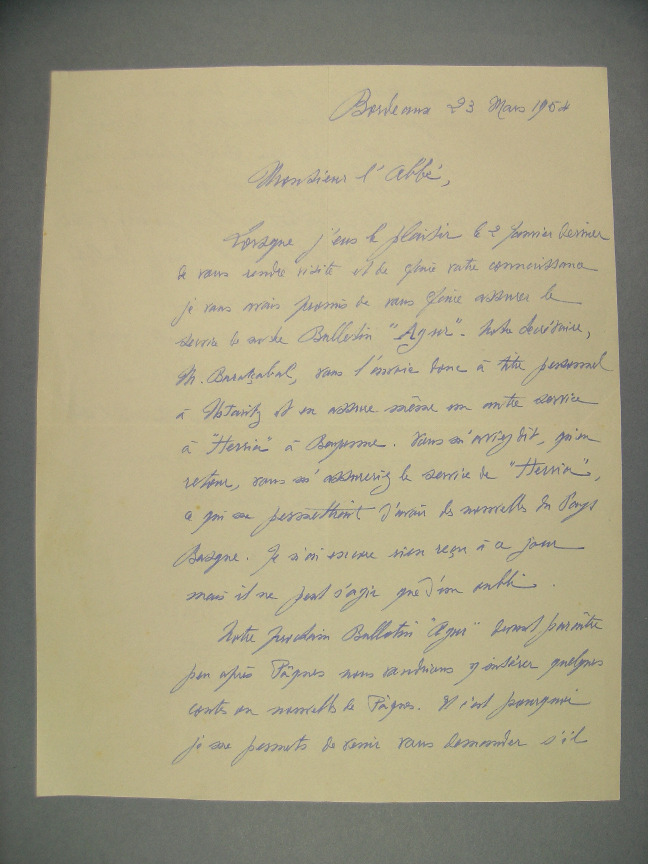 Bordeaux 23 Mars 1954
Monsieur l'Abbé,
Lorsque j'eus le plaisir le 2 Janvier dernier
de vous rendre visite et de faire votre connaissance
je vous avais promis de vous faire assurer le
service de notre Bulletin "Agur". Notre Secrétaire,
M. Baratçabal, vous l'envoie donc à titre personnel
à Ustaritz et en assure même un autre service
à "Herria" à Bayonne. Vous m'aviez dit, qu'en
retour, vous m'assureriez le service de "Herria",
ce qui me permettrait d'avoir des nouvelles du Pays
Basque. Je n'ai encore rien reçu à ce jour
mais il ne peut s'agir que d'un oubli.
Notre prochain Bulletin "Agur" devant paraître
peu après Pâques nous voudrions y insérer quelques
contes ou nouvelles de Pâques. C'est pourquoi
je me permets de venir vous demander s'il